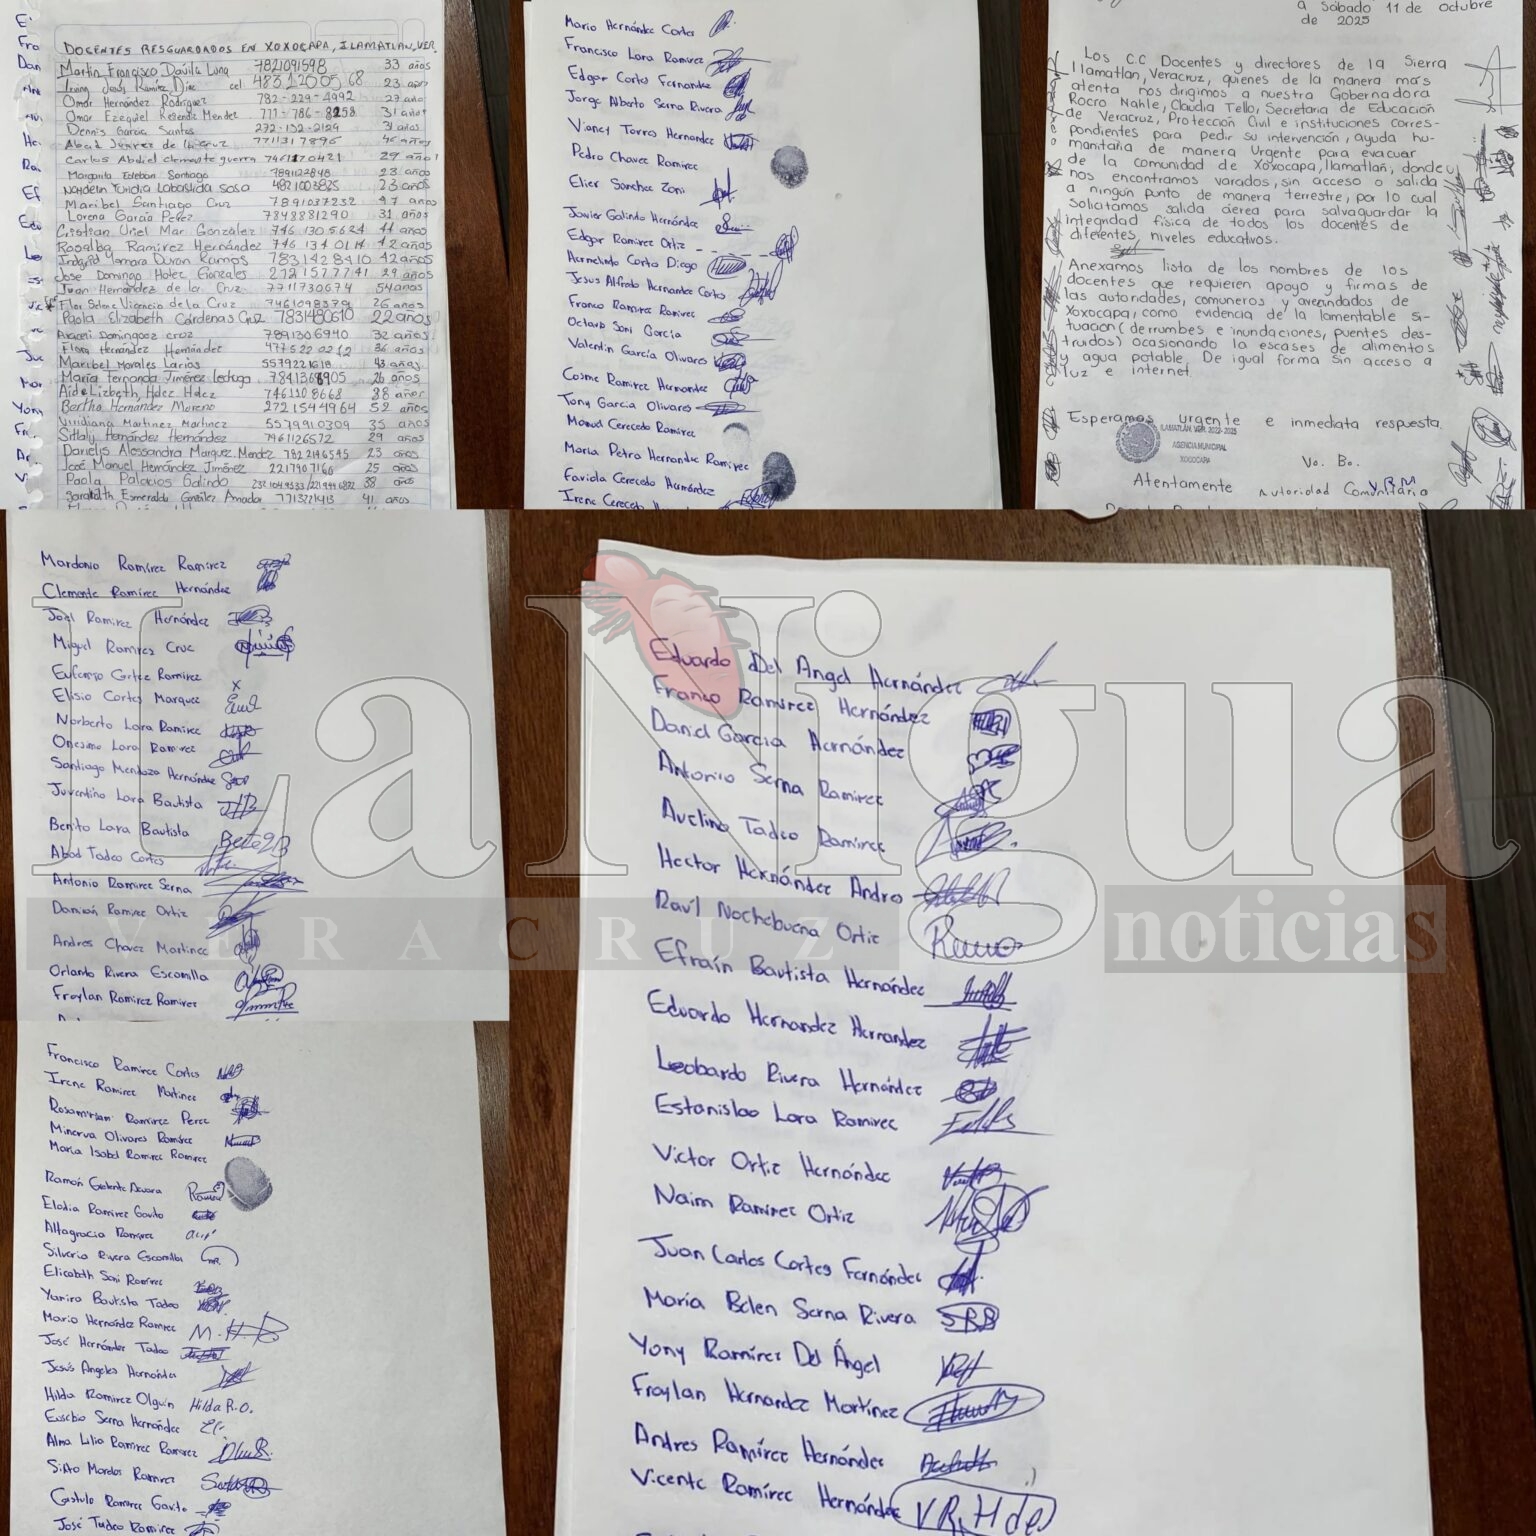 DOCENTES RESGUARDADOS EN XOXOCAPA, ILAMATLAN, VER.
Martin Francisco Davila Luna 7821091598 33 años
Irving Jesus Ramírez Diaz cel 483 120 05 68 23 años
Omar Hernández Rodríguez 782-229-4992 27 años
Omar Ezequiel Resendiz Mendez 777-786-8258 31 años
Dennis Garcia Santos 272-132-2129 31 años
Abad Juárez de la Cruz 7711317895
Carlos Abdiel clemente guerra 7461170421 29 años
Margarita Esteban Santiago 7891122848 23 años
Naydelin Yuridia Labastida sosa 4821003825 23 años
Maribel Santiago Cruz 7891037232 47 años
Lorena Garcia Perez 7848881290 31 años
Cristian Uriel Mar González 746 130 5624 44 años
Rosalba Ramirez Hernández 746 134 0114 42 años
Yamara Duran Ramos 7831428410 42 años
Jose Domingo Hdez Gonzales 2721577741 29 años
Juan Hernández de la Cruz 7711730674 54 años
Flor Selene Vicencio de la Cruz 7461098379 26 años
Paola Elizabeth Cárdenas Cruz 7831480610 22 años
Araceli Dominguez cruz 7891306940 32 años
Flora Hernández Hernández 36 años
Maribel Morales Larios 5579221618 43 años
María Fernanda Jiménez Lechuga 26 años
Aide Lizbeth Hdez Hdez 7461108668 38 años
Bertha Hernández Moreno 2721544964 52 años
Viridiana Martinez Martinez 5579910309 35 años
Sitlaly Hernández Hernández 7461126572 29 años
Danelys Alessandra Marquez Mendez 7822146545 23 años
José Manuel Hernández Jiménez 2217907166 25 años
Paola Palacios Galindo 38 años
Esmeralda González Amador 7713221413 41 años
Mario Hernández Cortes
Francisco Lara Ramirez
Edgar Cortes Fernandez
Jorge Alberto Serna Rivera
Viancy Torres Hernandez
Pedro Chavez Ramirez
Elier Sanchez Zoni
Javier Galindo Hernández
Edgar Ramirez Ortiz
Hermelindo Cortes Diego
Jesus Alfredo Hernandez Cortes
Franco Ramirez Ramirez
Octavio Soni Garcia
Valentin Garcia Olivares
Cosme Ramirez Hernandez
Tony Garcia Olivares
Manuel Cerecedo Ramirez
Maria Petra Hernandez Ramirez
Faviola Cerecedo Hernández
Irene Cerecedo
a Sábado 11 de octubre
de 2025
Los C.C Docentes y directores de la Sierra
Ilamatlan, Veracruz, quienes de la manera más
atenta nos dirigimos a nuestra Gobernadora
Rocío Nahle, Claudia Tello, Secretaria de Educación
de Veracruz, Protección Civil e instituciones corres-
pondientes para pedir su intervención, ayuda hu-
manitaria de manera Urgente para evacuar
de la comunidad de Xoxocapa, Ilamatlan, donde
nos encontramos varados, sin acceso o salida
a ningún punto de manera terrestre, por lo cual
solicitamos salida áerea para salvaguardar la
integridad física de todos los docentes de
diferentes niveles educativos.
Anexamos lista de los nombres de los
docentes que requieren apoyo y firmas de
las autoridades, comuneros y avecindados de
Xoxocapa, como evidencia de la lamentable si-
tuación (derrumbes e inundaciones, puentes des-
truidos) ocasionando la escases de alimentos
y agua potable. De igual forma sin acceso a
luz e internet.
Esperamos urgente e inmediata respuesta.
ILAMATLAN, VER. 2022-2025
AGENCIA MUNICIPAL
XOXOCAPA
Vo. Bo.
V.R.M
Atentamente Autoridad Comunitaria
Mardonio Ramírez Ramírez
Clemente Ramírez Hernández
Joel Ramirez Hernández
Miguel Ramirez Cruz
Eufemso Cortez Ramirez x
Elisio Cortes Marquez
Norberto Lara Ramirez
Onesimo Lara Ramirez
Santiago Mendoza Hernández
Juventino Lara Bautista
Benito Lara Bautista
Abad Tadeo Cortes
Antonio Ramirez Serna
Damian Ramirez Ortiz
Andres Chavez Martinez
Orlando Rivera Escamilla
Froylan Ramirez Ramirez
Eduardo Del Angel Hernández
Franco Ramirez Hernández
Daniel Garcia Hernández
Antonio Serna Ramirez
Avelino Tadeo Ramirez
Hector Hernández Andro
Raúl Nochebuena Ortiz
Efraín Bautista Hernández
Eduardo Hernandez Hernandez
Leobardo Rivera Hernández
Estanislao Lara Ramirez
Victor Ortiz Hernández
Naim Ramirez Ortiz
Juan Carlos Cortes Fernández
María Belen Serna Rivera SRB
Yony Ramírez Del Ángel
Froylan Hernandez Martínez
Andres Ramírez Hernández
Vicente Ramírez Hernández V.R.Hdez
Francisco Ramirez Cortes
Irene Ramirez Martinez
Rosamiriam Ramirez Perez
Minerva Olivares Ramírez
María Isabel Ramirez Ramirez
Elodia Ramirez Gavito
Altagracia Ramirez
Silveria Rivera Escamilla
Elizabeth Soni Ramírez
Yamira Bautista Tadeo
Mario Hernández Ramirez M.H.R
José Hernández Tadeo
Jesús Angeles Hernández
Hilda Ramirez Olguín Hilda R.O.
Eusebio Serna Hernández
Alma Lilia Ramirez Ramirez
Sixto Morales Ramirez
Castulo Ramirez Gavito
José Tadeo Ramirez
LaNigua
VERACRUZ noticias